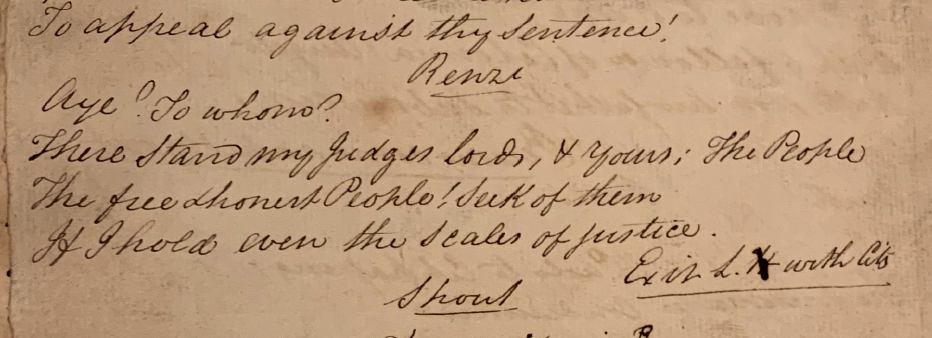 To appeal against thy sentence!
Renzi
Aye? To whom?
There stand my Judges lords, & yours; The People
The free & honest People! Seek of them
If I hold even the Scales of Justice.
Exit L. with Cits
Shout